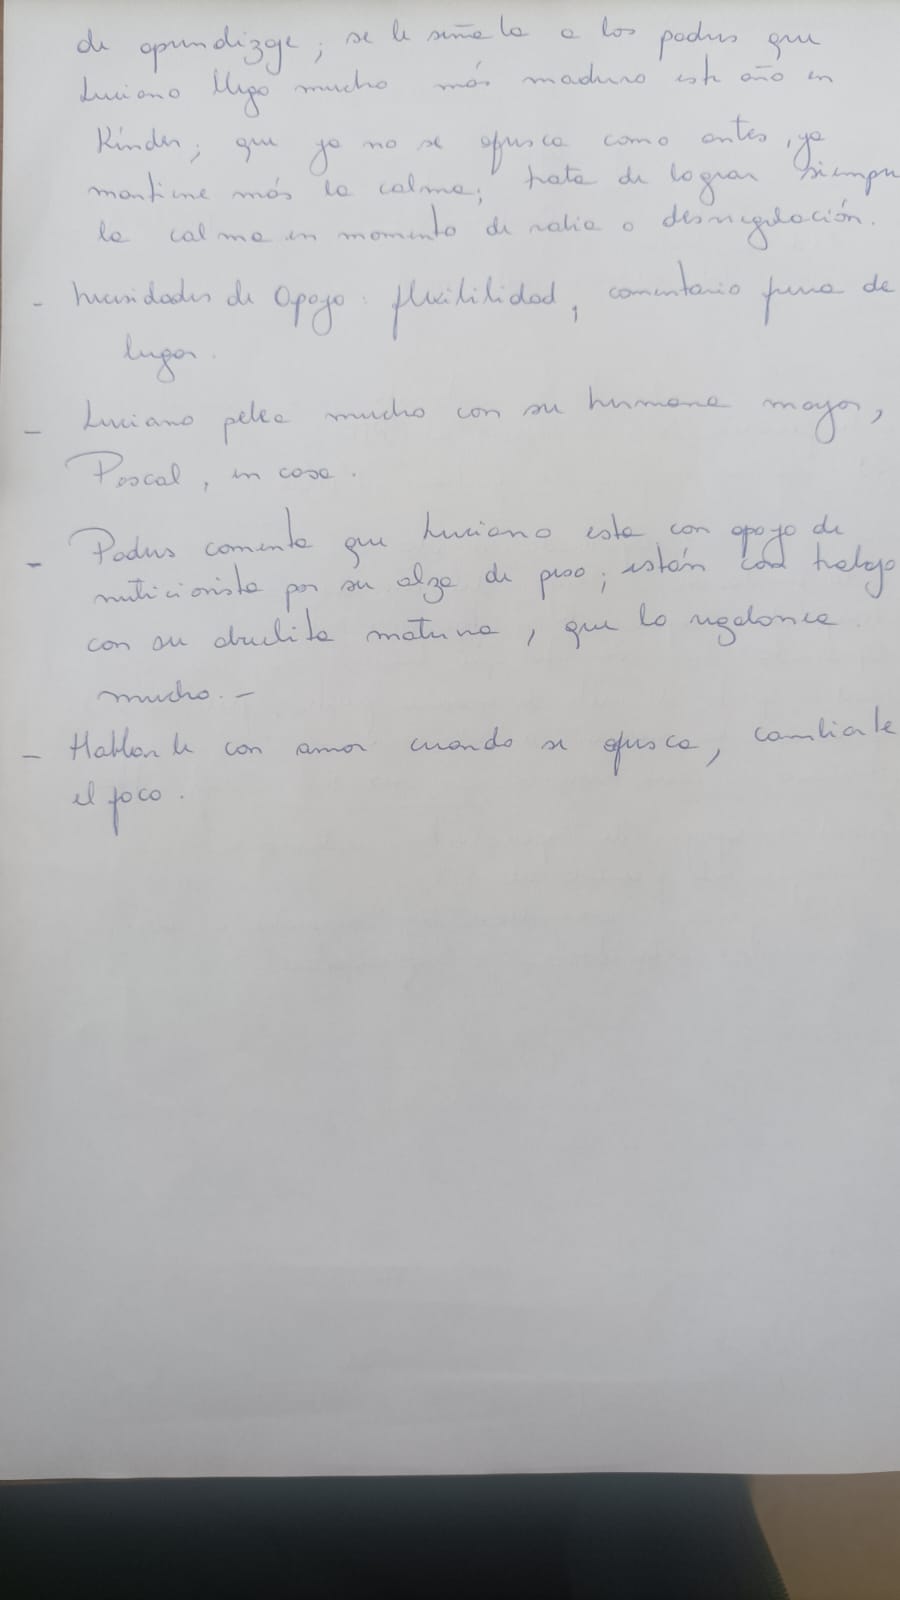 de aprendizaje; se le señala a los padres que
Luciano llego mucho más maduro este año en
Kinder; que ya no se ofusca como antes, ya
mantiene más la calma; trata de lograr siempre
la calma en momento de rabia o desregulación.
- necesidades de Apoyo: flexibilidad, comentario fuera de
lugar.
- Luciano pelea mucho con su hermana mayor,
Pascal, en casa.
- Padres comenta que Luciano esta con apoyo de
nutricionista por su alza de peso; están con trabajo
con su abuelita materna, que lo regalonea
mucho.-
- Hablarle con amor cuando se ofusca, cambiarle
el foco.